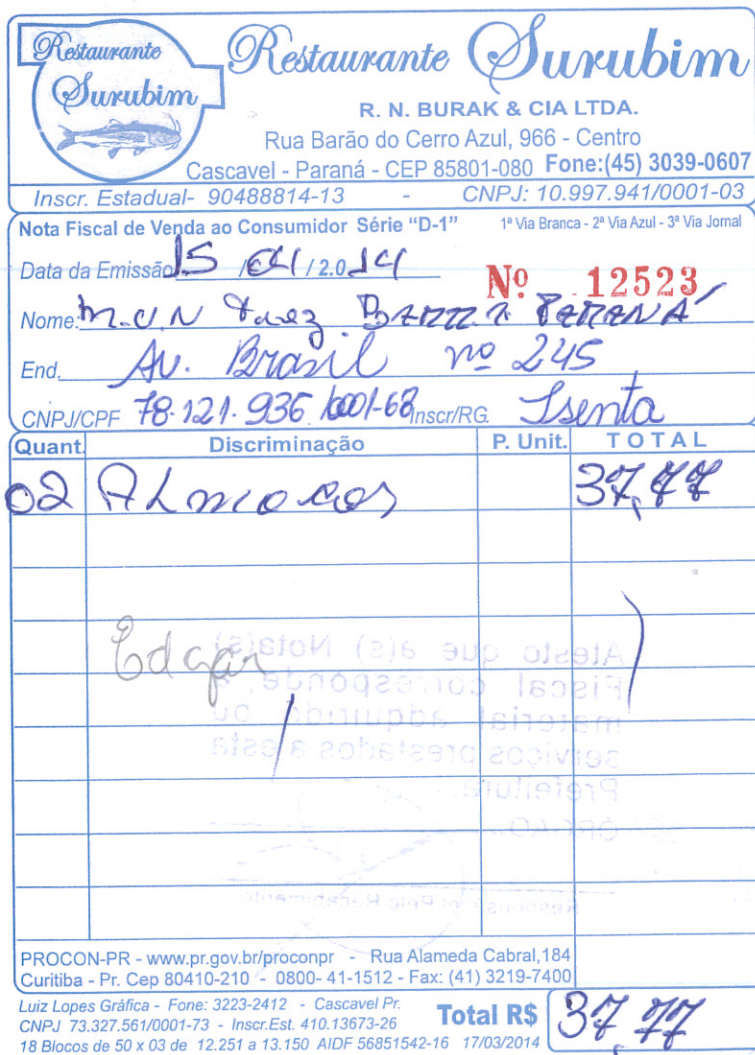 Restaurante
Surubim
Restaurante Surubim
R. N. BURAK & CIA LTDA.
Rua Barão do Cerro Azul, 966 - Centro
Cascavel - Paraná - CEP 85801-080 Fone:(45) 3039-0607
Inscr. Estadual- 90488814-13 - CNPJ: 10.997.941/0001-03
Nota Fiscal de Venda ao Consumidor Série "D-1" 1ª Via Branca - 2ª Via Azul - 3ª Via Jornal
Data da Emissão 15 / 04 / 2.0 14
Nº 12523
Nome: M.U.N
End. Av. Brasil nº 245
CNPJ/CPF 78.121.936/0001-68 Inscr/RG. Isenta
Quant. Discriminação P. Unit. TOTAL
02 ALmoços 37,77
Edgar
Atesto que a(s) Nota(s)
Fiscal corresponde, a
material adquirido ou
serviços prestados a esta
Prefeitura.
Responsável Pelo Recebimento
PROCON-PR - www.pr.gov.br/proconpr - Rua Alameda Cabral,184
Curitiba - Pr. Cep 80410-210 - 0800- 41-1512 - Fax: (41) 3219-7400
Luiz Lopes Gráfica - Fone: 3223-2412 - Cascavel Pr.
CNPJ 73.327.561/0001-73 - Inscr.Est. 410.13673-26
18 Blocos de 50 x 03 de 12.251 a 13.150 AIDF 56851542-16 17/03/2014
Total R$ 37,77